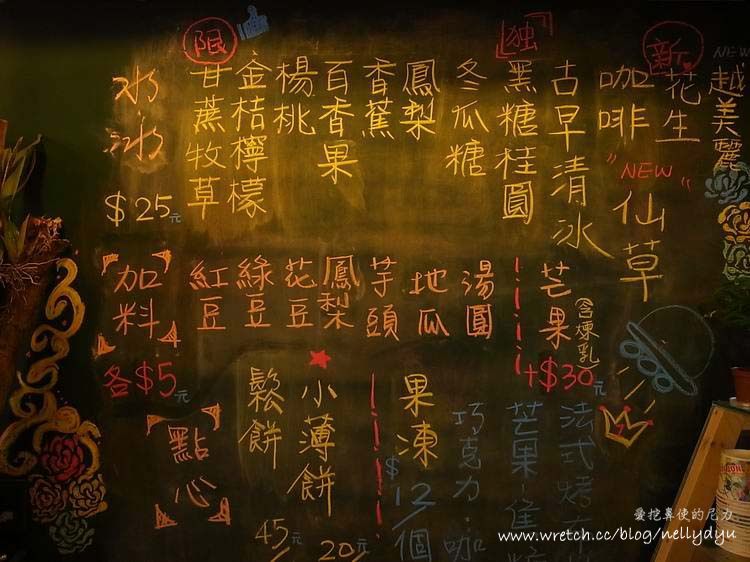 冰冰
$25元
限
甘蔗牧草
金桔檸檬
楊桃
百香果
香蕉
鳳梨
冬瓜糖
独
黑糖桂圓
古早清冰
咖啡
新
花生
NEW
越美麗
"NEW"
仙草
加料
各$5元
紅豆
綠豆
花豆
鳳梨
芋頭
地瓜
湯圓
芒果
(含煉乳)
+$30元
點心
鬆餅
45/
小薄餅
20/元
果凍
$12/個
巧克力.咖
芒果.焦糖
法式烤
愛挖鼻使的尼力
www.wretch.cc/blog/nellydyu